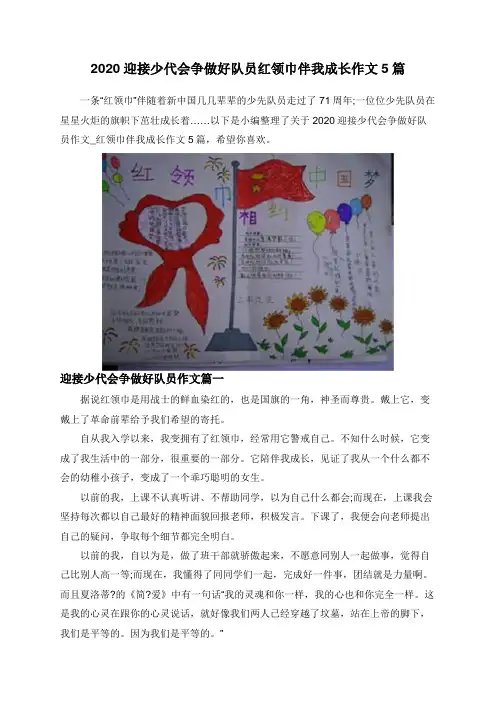 2020 迎接少代会争做好队员红领巾伴我成长作文 5 篇
一条“红领巾”伴随着新中国几几辈辈的少先队员走过了 71 周年;一位位少先队员在
星星火炬的旗帜下茁壮成长着……以下是小编整理了关于 2020 迎接少代会争做好队
员作文_红领巾伴我成长作文 5 篇，希望你喜欢。
红领巾相约中国梦
迎接少代会争做好队员作文篇一
据说红领巾是用战士的鲜血染红的，也是国旗的一角，神圣而尊贵。戴上它，变
戴上了革命前辈给予我们希望的寄托。
自从我入学以来，我变拥有了红领巾，经常用它警戒自己。不知什么时候，它变
成了我生活中的一部分，很重要的一部分。它陪伴我成长，见证了我从一个什么都不
会的幼稚小孩子，变成了一个乖巧聪明的女生。
以前的我，上课不认真听讲、不帮助同学，以为自己什么都会;而现在，上课我会
坚持每次都以自己最好的精神面貌回报老师，积极发言。下课了，我便会向老师提出
自己的疑问，争取每个细节都完全明白。
以前的我，自以为是，做了班干部就骄傲起来，不愿意同别人一起做事，觉得自
己比别人高一等;而现在，我懂得了同同学们一起，完成好一件事，团结就是力量啊。
而且夏洛蒂?的《简?爱》中有一句话“我的灵魂和你一样，我的心也和你完全一样。这
是我的心灵在跟你的心灵说话，就好像我们两人已经穿越了坟墓，站在上帝的脚下，
我们是平等的。因为我们是平等的。”